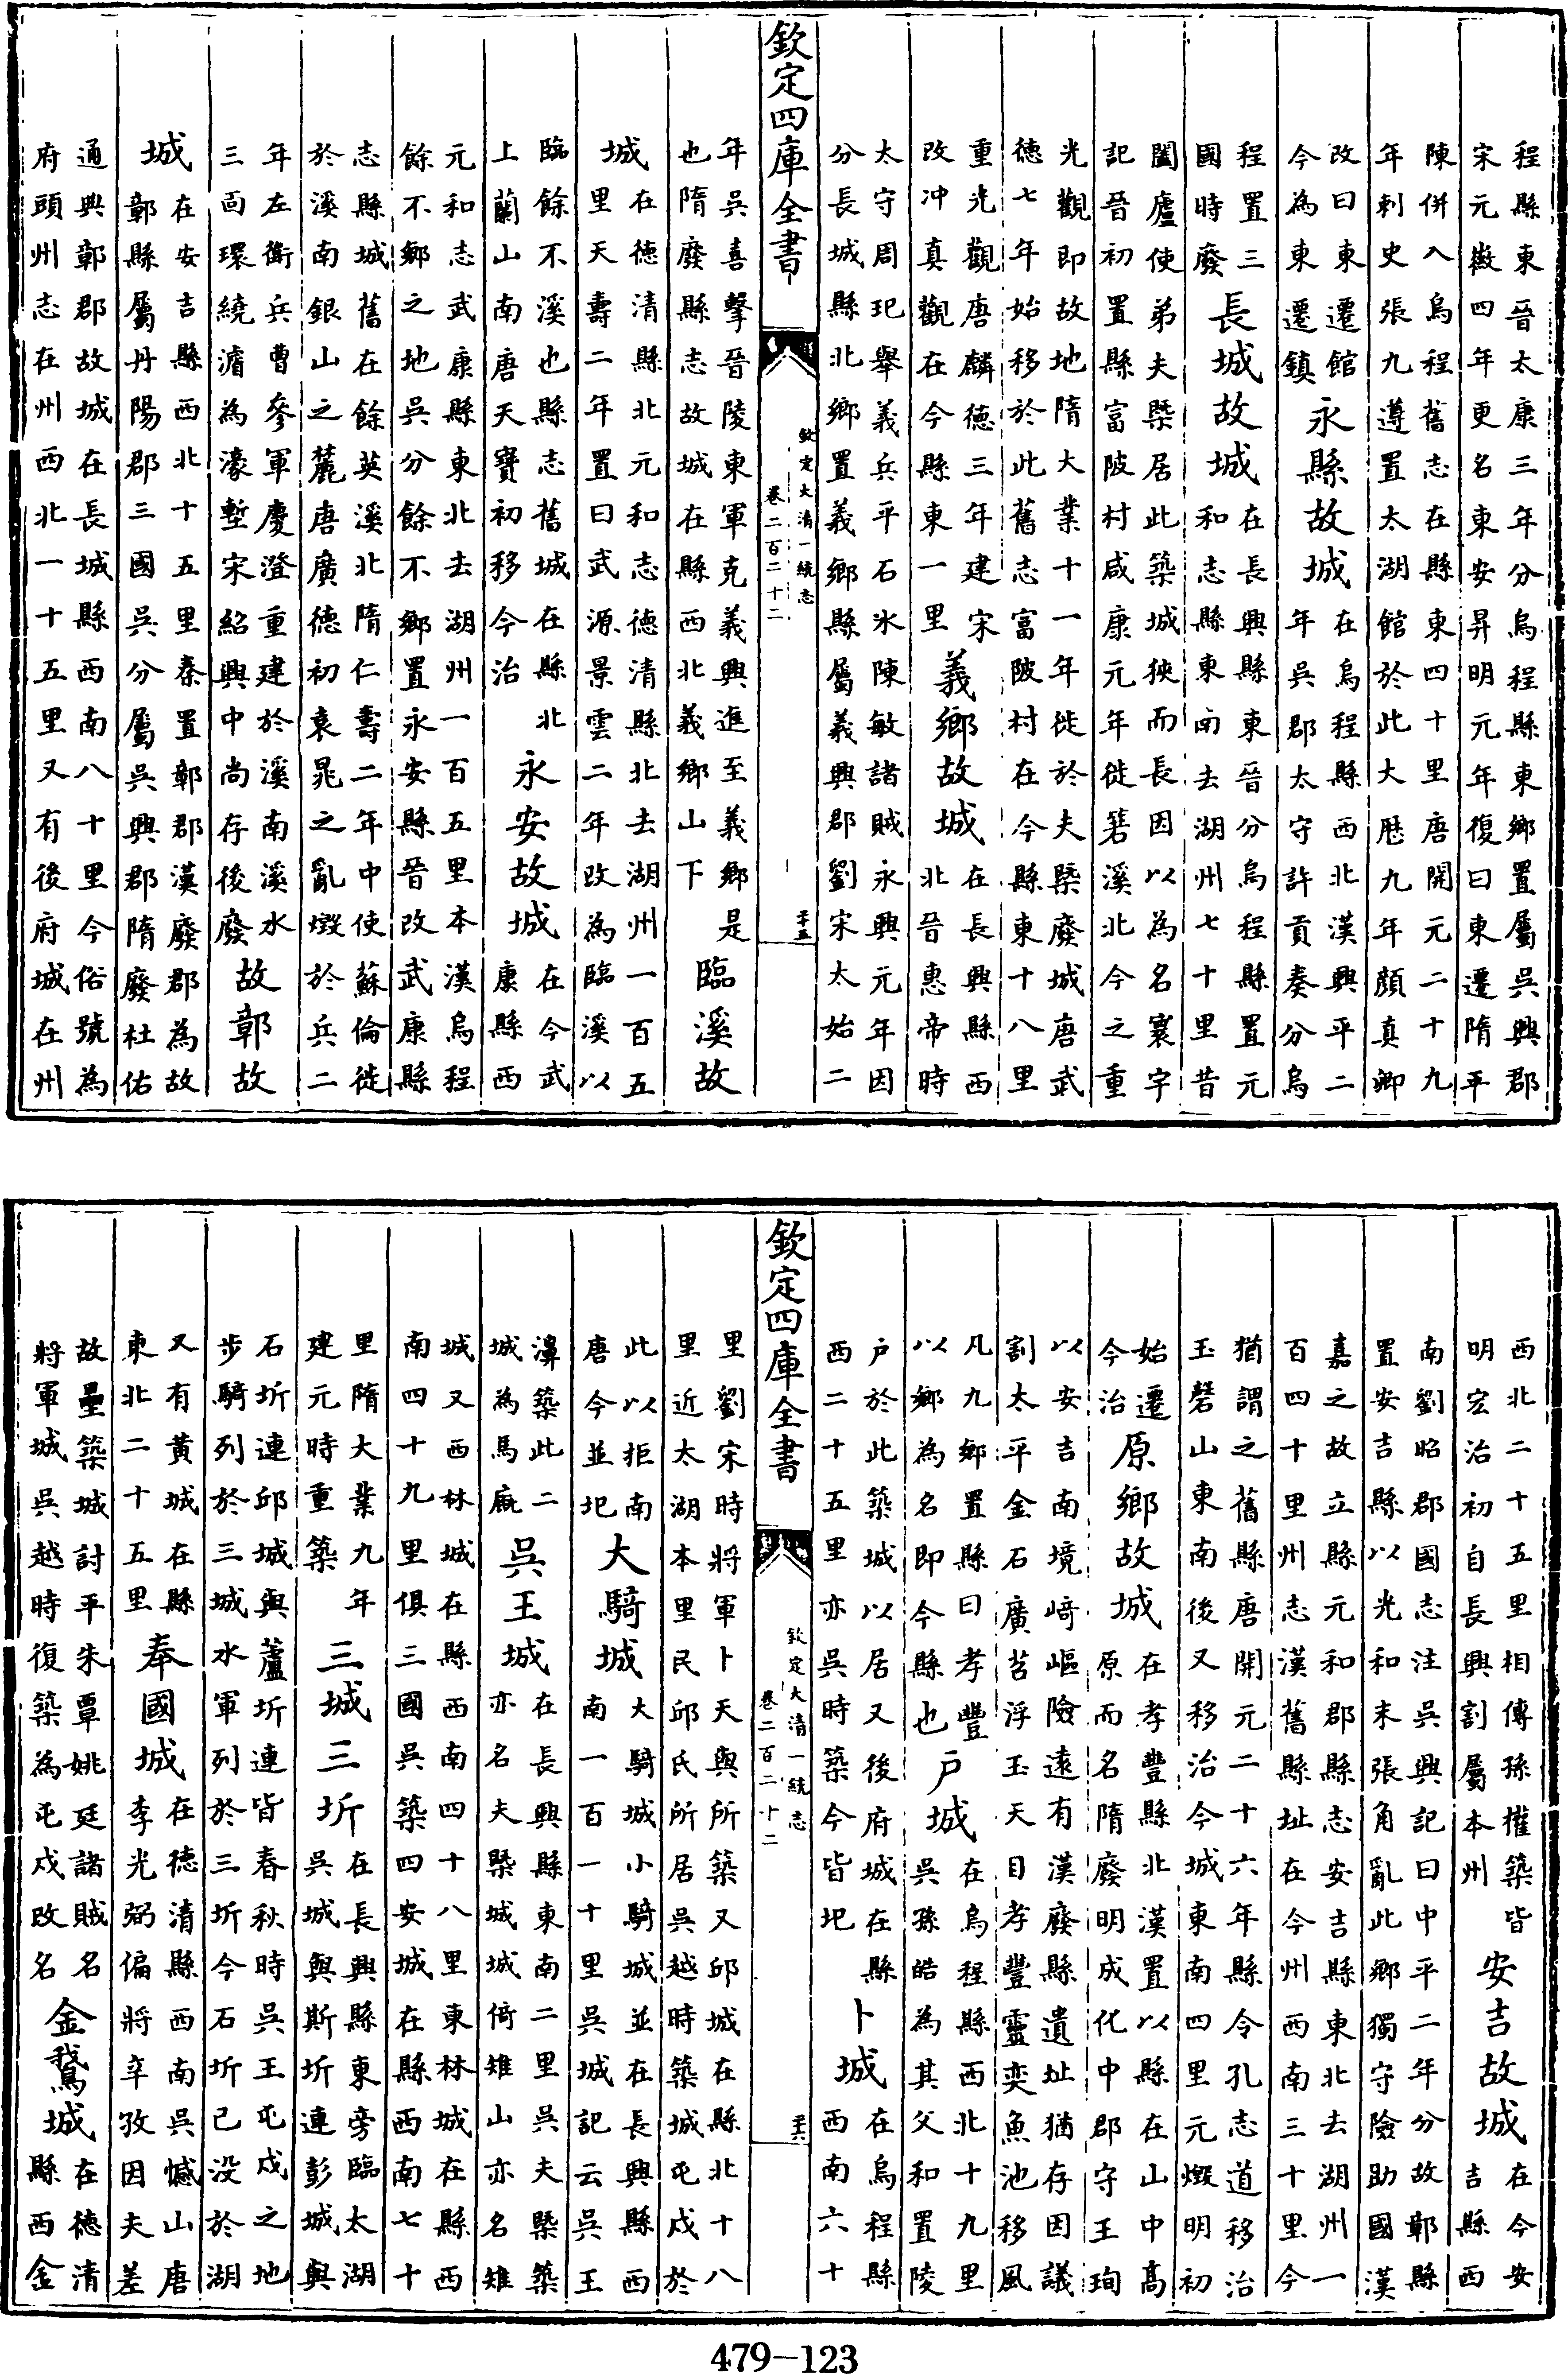 程縣東晉太康三年分烏程縣東鄉置屬吳興郡
宋元徽四年更名東安昇明元年復曰東遷隋平
陳併入烏程舊志在縣東四十里唐開元二十九
年刺史張九遵置太湖館於此大厯九年顔真卿
改曰東遷館
今為東遷鎮
永縣故城
在烏程縣西北漢興平二
年吳郡太守許貢奏分烏
程置三
國時廢
長城故城
在長興縣東晉分烏程縣置元
和志縣東南去湖州七十里昔
闔廬使弟夫槩居此築城狹而長因以為名寰宇
記晉初置縣富陂村咸康元年徙箬溪北今之重
光觀即故地隋大業十一年徙於夫槩廢城唐武
德七年始移於此舊志富陂村在今縣東十八里
重光觀唐麟德三年建宋
改冲真觀在今縣東一里
義鄉故城
在長興縣西
北晉惠帝時
太守周玘舉義兵平石氷陳敏諸賊永興元年因
分長城縣北鄉置義鄉縣屬義興郡劉宋太始二
欽定四庫全書
欽定大清一統志
卷二百二十二
二十五
年吳喜擊晉陵東軍克義興進至義鄉是
也隋廢縣志故城在縣西北義鄉山下
臨溪故
城
在德清縣北元和志德清縣北去湖州一百五
里天壽二年置曰武源景雲二年改為臨溪以
臨餘不溪也縣志舊城在縣北
上蘭山南唐天寳初移今治
永安故城
在今武
康縣西
元和志武康縣東北去湖州一百五里本漢烏程
餘不鄉之地吳分餘不鄉置永安縣晉改武康縣
志縣城舊在餘英溪北隋仁壽二年中使蘇倫徙
於溪南銀山之麓唐廣德初袁晁之亂燬於兵二
年左衛兵曹參軍慶澄重建於溪南溪水
三面環繞濬為濠塹宋紹興中尚存後廢
故鄣故
城
在安吉縣西北十五里秦置鄣郡漢廢郡為故
鄣縣屬丹陽郡三國吳分屬吳興郡隋廢杜佑
通典鄣郡故城在長城縣西南八十里今俗號為
府頭州志在州西北一十五里又有後府城在州
西北二十五里相傳孫權築皆
明宏治初自長興割屬本州
安吉故城
在今安
吉縣西
南劉昭郡國志注吳興記曰中平二年分故鄣縣
置安吉縣以光和末張角亂此鄉獨守險助國漢
嘉之故立縣元和郡縣志安吉縣東北去湖州一
百四十里州志漢舊縣址在今州西南三十里今
猶謂之舊縣唐開元二十六年縣令孔志道移治
玉磬山東南後又移治今城東南四里元燬明初
始遷
今治
原鄉故城
在孝豐縣北漢置以縣在山中高
原而名隋廢明成化中郡守王珣
以安吉南境崎嶇險遠有漢廢縣遺址猶存因議
割太平金石廣苕浮玉天目孝豐靈奕魚池移風
凡九鄉置縣曰孝豐
以鄉為名即今縣也
户城
在烏程縣西北十九里
吳孫皓為其父和置陵
户於此築城以居又後府城在縣
西二十五里亦吳時築今皆圮
卜城
在烏程縣
西南六十
里劉宋時將軍卜天與所築又邱城在縣北十八
里近太湖本里民邱氏所居吳越時築城屯戍於
欽定四庫全書
欽定大清一統志
卷二百二十二
二十六
此以拒南
唐今並圮
大騎城
大騎城小騎城並在長興縣西
南一百一十里吳城記云吳王
濞築此二
城為馬廐
吳王城
在長興縣東南二里吳夫槩築
亦名夫槩城城倚雉山亦名雉
城又西林城在縣西南四十八里東林城在縣西
南四十九里俱三國吳築四安城在縣西南七十
里隋大業九年
建元時重築
三城三圻
在長興縣東旁臨太湖
吳城與斯圻連彭城與
石圻連邱城與蘆圻連皆春秋時吳王屯戍之地
步騎列於三城水軍列於三圻今石圻已没於湖
又有黄城在縣
東北二十五里
奉國城
在德清縣西南吳憾山唐
李光弼偏將辛孜因夫差
故壘築城討平朱覃姚廷諸賊名
將軍城吳越時復築為屯戍改名
金鵞城
在德清
縣西金
479-123